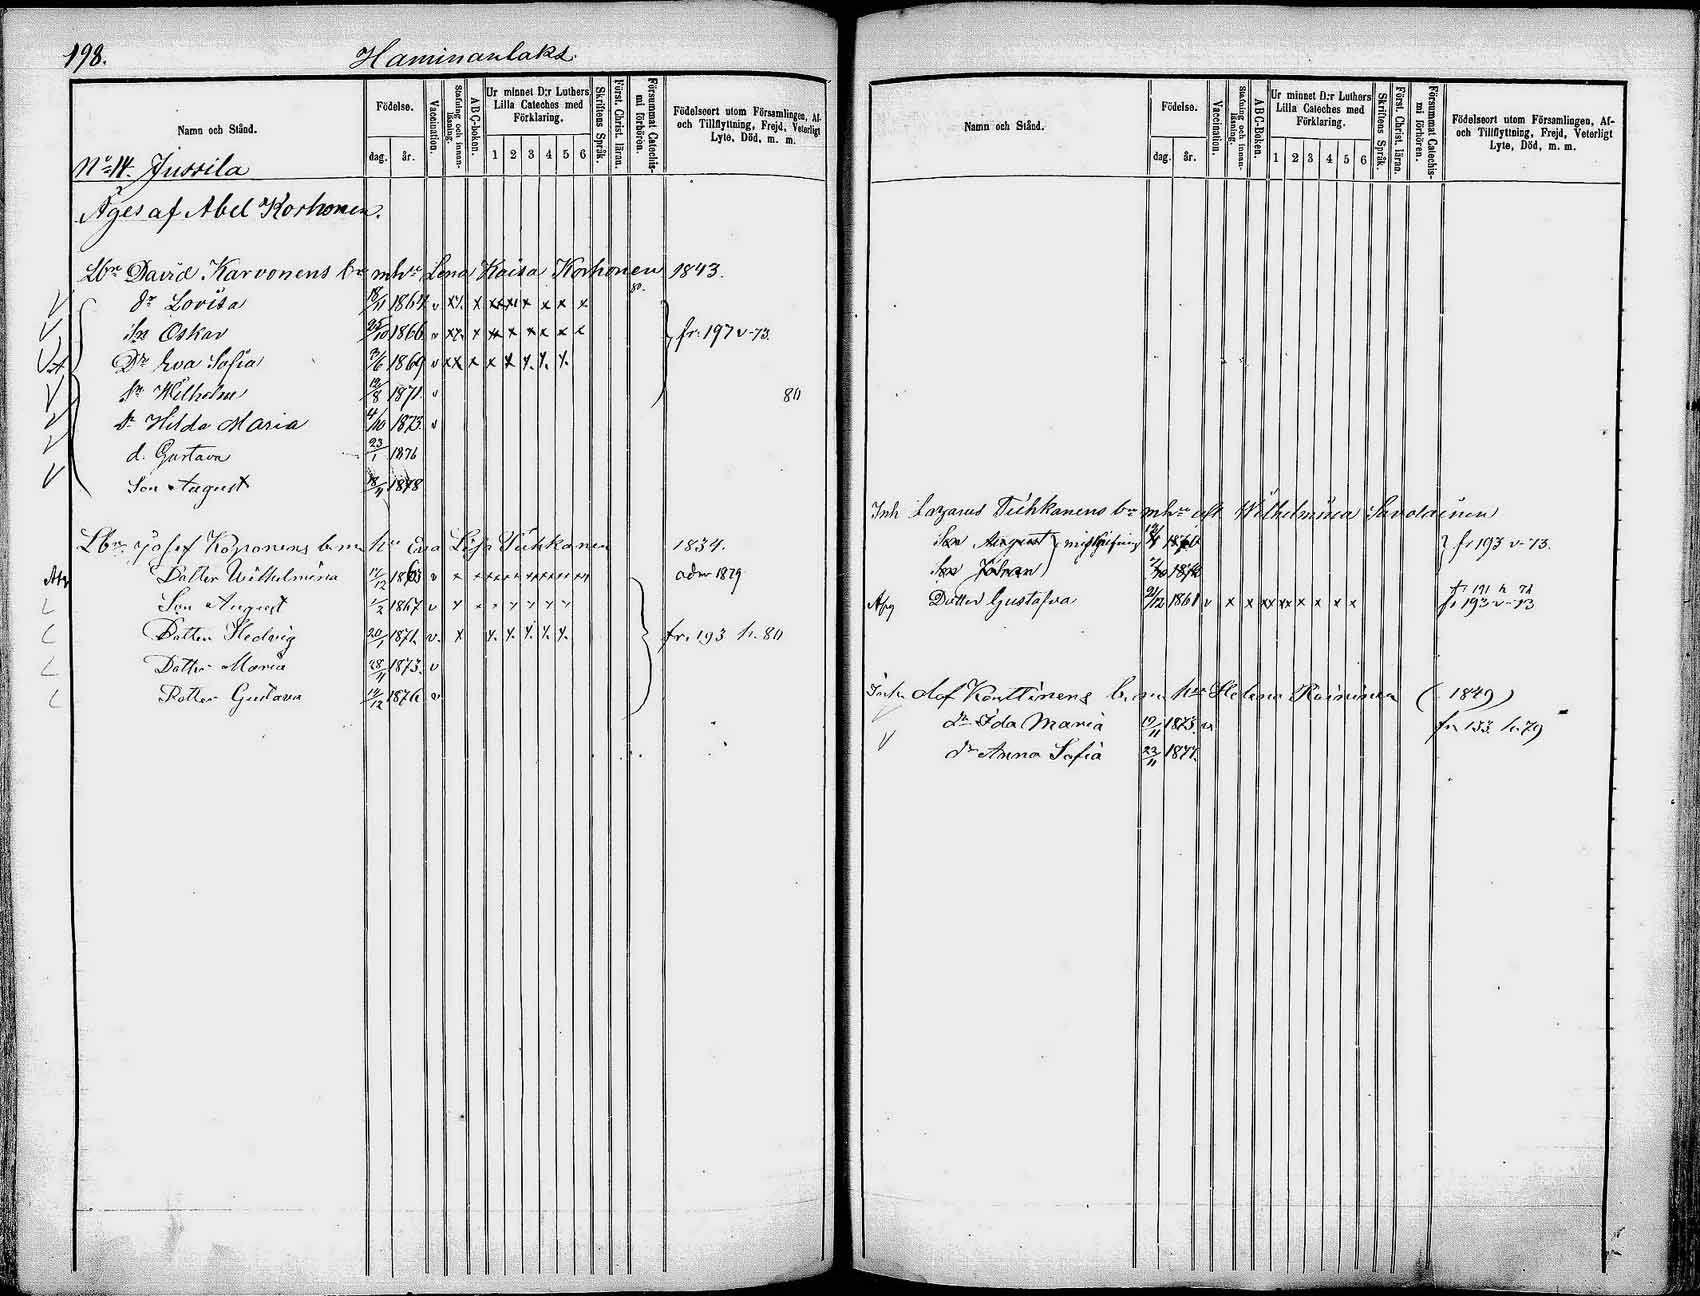 198. Haminanlaks
Namn och Stånd.
Födelse.
dag. år.
Vaccination.
Stafning och innanläsning.
ABC-boken.
Ur minnet D:r Luthers Lilla Cateches med Förklaring.
1 2 3 4 5 6
Skriftens Språk.
Först. Christ. läran.
Försummat Catechismi förhören.
Födelseort utom Församlingen, Af- och Tillflyttning, Frejd, Veterligt Lyte, Död, m. m.
No 14. Jussila
Äges af Abel Korhonen.
Lbr David Karvonens br mhr Lena Kaisa Korhonen 1843.
80.
dr Lovisa 18/11 1864 v
Sn Oskar 25/10 1866 v fr. 197 v-73.
Dr Eva Sofia 3/6 1869 v
Sn Wilhelm 12/8 1871. v 80
dr Hilda Maria 4/10 1873. v
d. Gustava 23/1 1876
Son August 18/11 1878
Lbr Josef Koponens b.m hr Eva Lisa Tiihkanen 1834.
Dotter Wilhelmina 17/12 1863 v adm 1879
Son August 1/2 1867 v
Dotter Hedvig 20/1 1871. v. fr. 193 h. 80
Dotter Maria 28/11 1873. v
Dotter Gustava 17/12 1876 v
Namn och Stånd.
Födelse.
dag. år.
Vaccination.
Stafning och innanläsning.
ABC-Boken.
Ur minnet D:r Luthers Lilla Cateches med Förklaring.
1 2 3 4 5 6
Skriftens Språk.
Först. Christ. läran.
Försummat Catechismi förhören.
Födelseort utom Församlingen, Af- och Tillflyttning, Frejd, Veterligt Lyte, Död, m. m.
Inh Lazarus Tiihkanens br mhr Wilhelmina Savolainen
Son August fr 193 v-73.
Son Johan
Dotter Gustafva 21/12 1861 v fr 191 h 72
fr 193 v-73
Olof Konttinens b.m hr Helena Räisinen (1849)
dr Ida Maria 19/11 1873. v fr 133. h. 79
dr Anna Sofia 23/11 1877.